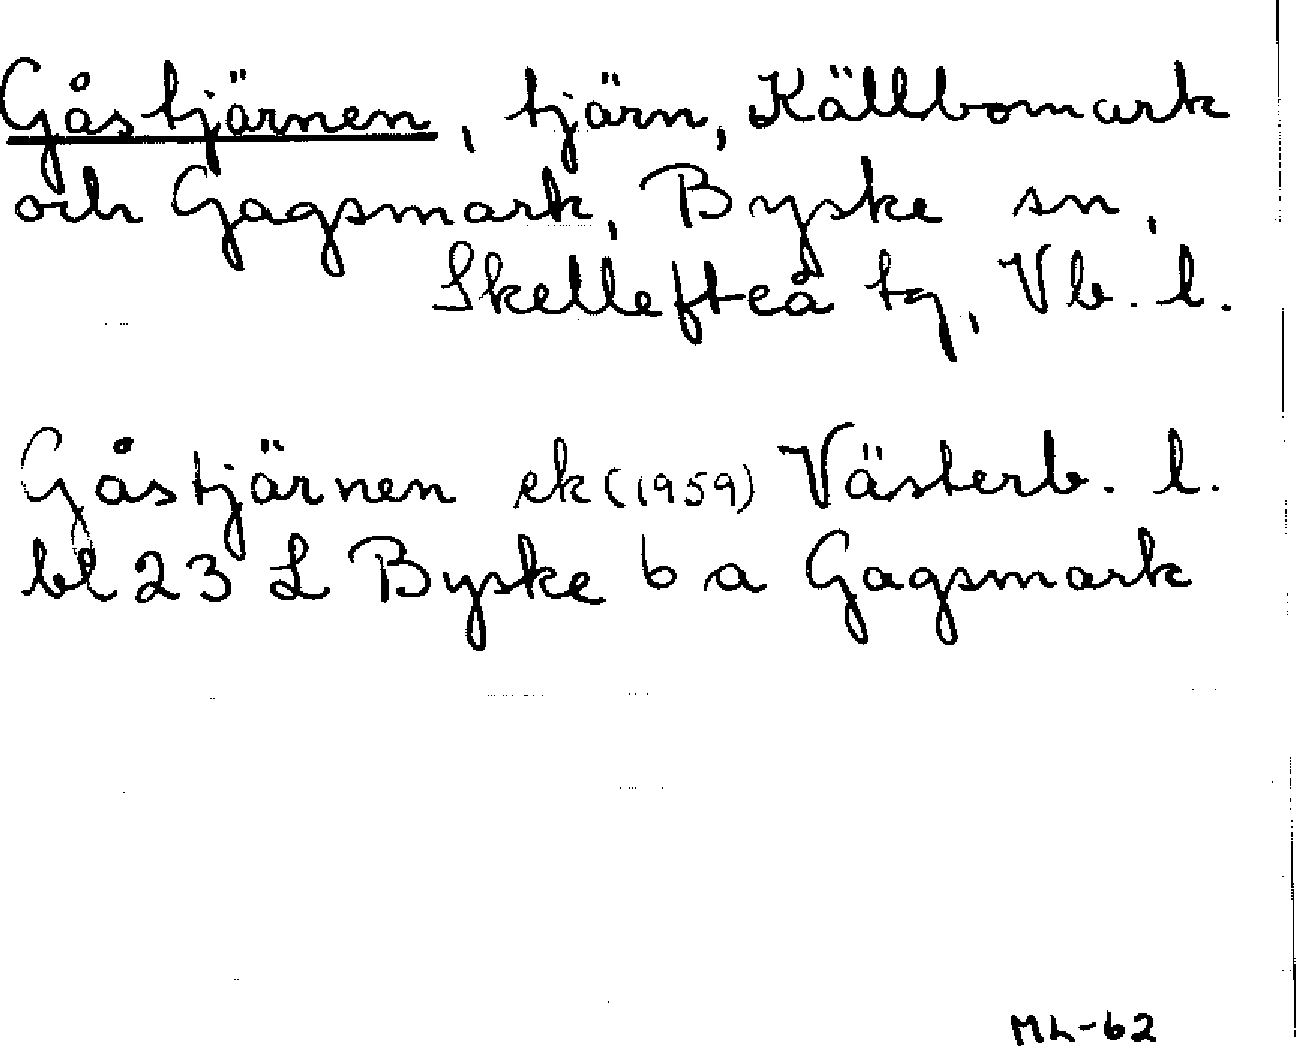 Gåstjärnen, tjärn, Källbomark
och Gagsmark, Byske sn,
Skellefteå tg, Vb. l.
Gåstjärnen ek (1959) Västerb. l.
bl 23 L Byske 6 a Gagsmark
ML-62